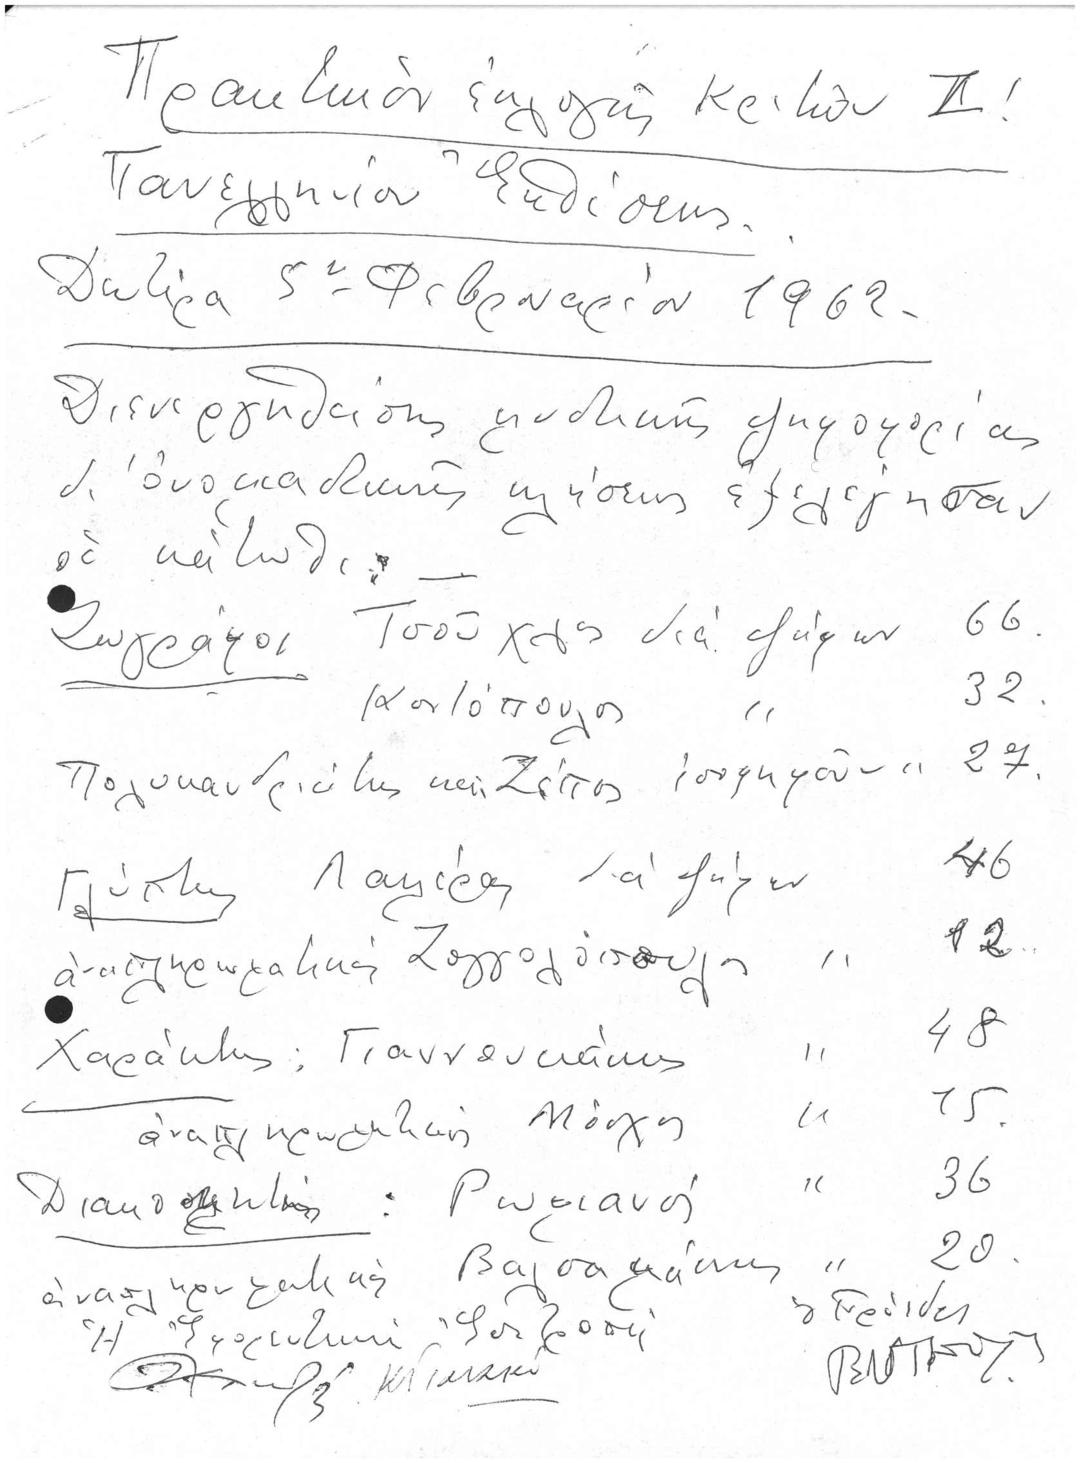 Πρακτικὸν ἐκλογῆς Κριτῶν
Πανελληνίου Ἐκθέσεως.
Δευτέρα 5η Φεβρουαρίου 1962.
Διενεργηθείσης μυστικῆς ψηφοφορίας
δι' ὀνομαστικῆς κλήσεως ἐξελέγησαν
οἱ κάτωθι: —
Ζωγράφοι Τσοῦχλος διά ψήφων 66.
Κοντόπουλος " 32.
Πολυκανδριώτης καί Ζέπος ἰσοψηφοῦν " 27.
Γλύπτης Λαμέρας διά ψήφων 46
ἀναπληρωματικός Ζογγολόπουλος " 12
Χαράκτης: Γιαννουκάκης " 48
ἀναπληρωματικός Μόσχος " 15.
Διακοσμητής: Ρωμανός " 36
ἀναπληρωματικός Βαλσαμάκης " 20.
Ἡ Ἐφορευτική Ἐπιτροπή ὁ Πρόεδρος